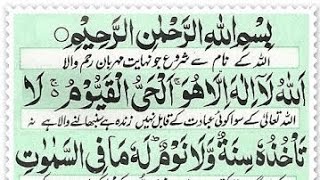 بِسْمِ اللهِ الرَّحْمٰنِ الرَّحِيْمِ ○
اللہ کے نام سے شروع جو نہایت مہربان رحم والا
اَللهُ لَاۤ اِلٰهَ اِلَّا هُوَ ۚ اَلْحَیُّ الْقَیُّوْمُ ۚ۬ لَا
اللہ تعالیٰ کے سوا کوئی عبادت کے قابل نہیں زندہ ہے سنبھالنے والا ہے نہ
تَاْخُذُهٗ سِنَةٌ وَّلَا نَوْمٌ ؕ لَهٗ مَا فِی السَّمٰوٰتِ